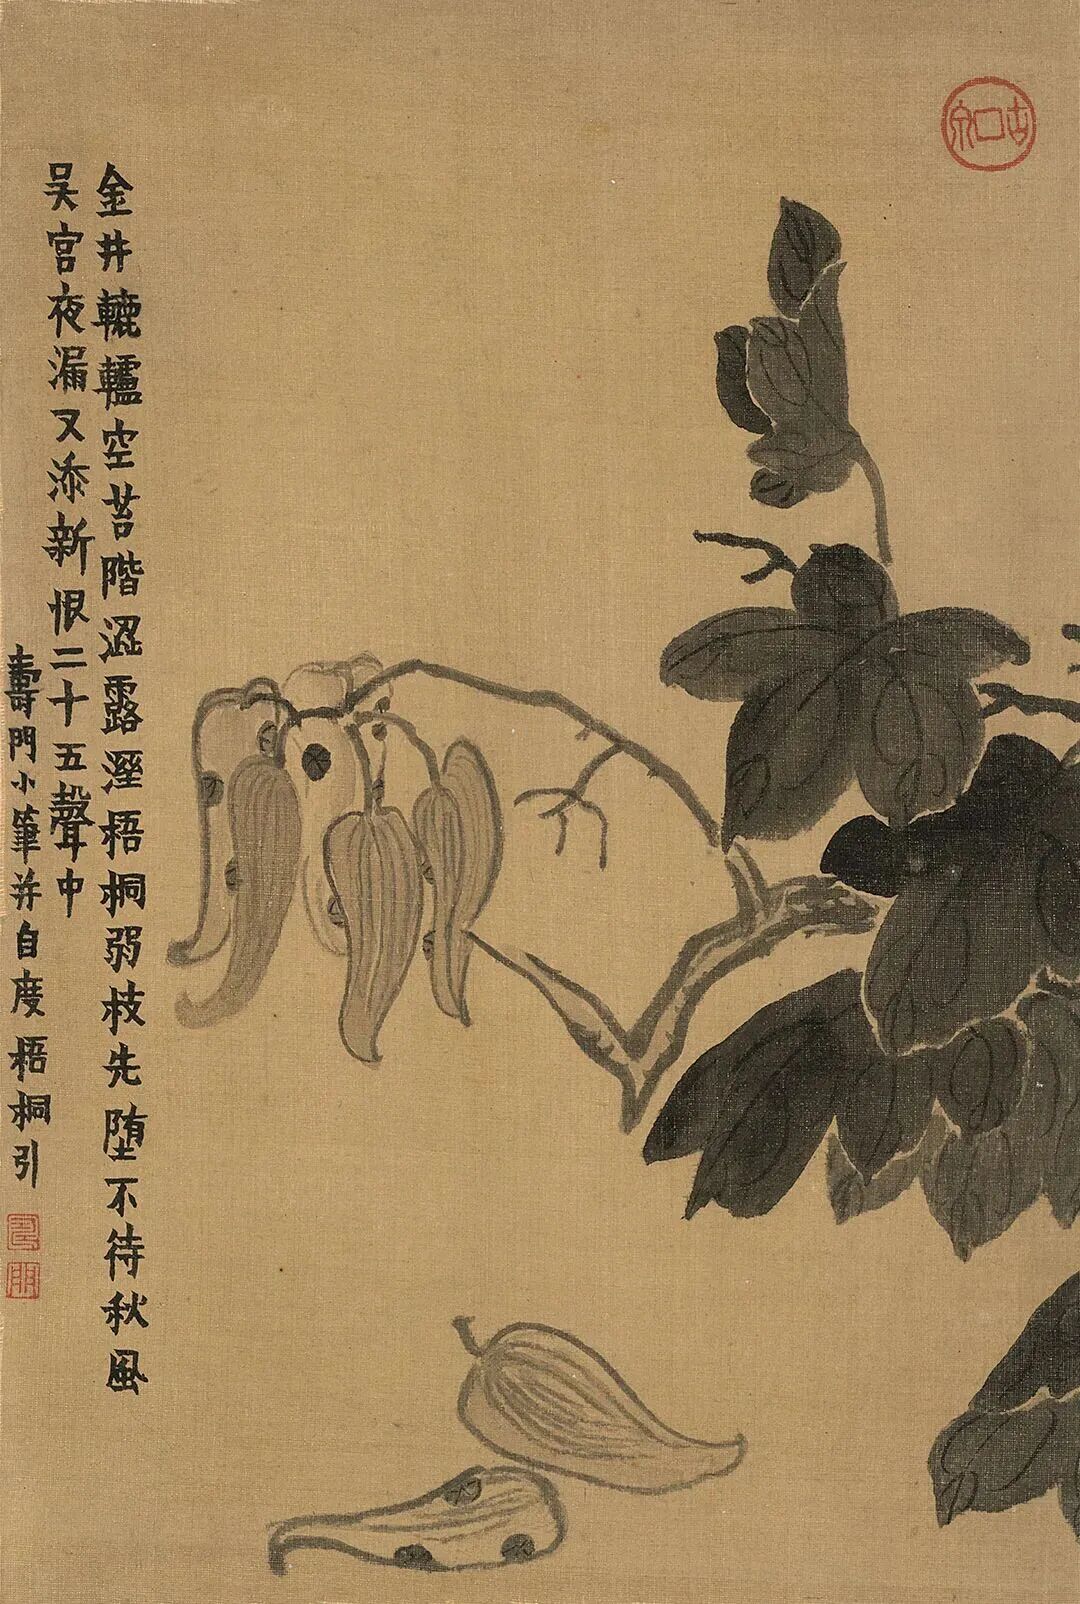 金井轆轤空苔階澀露溼梧桐弱枝先墮不待秋風
吳宮夜漏又添新恨二十五聲中
壽門小筆并自度梧桐引